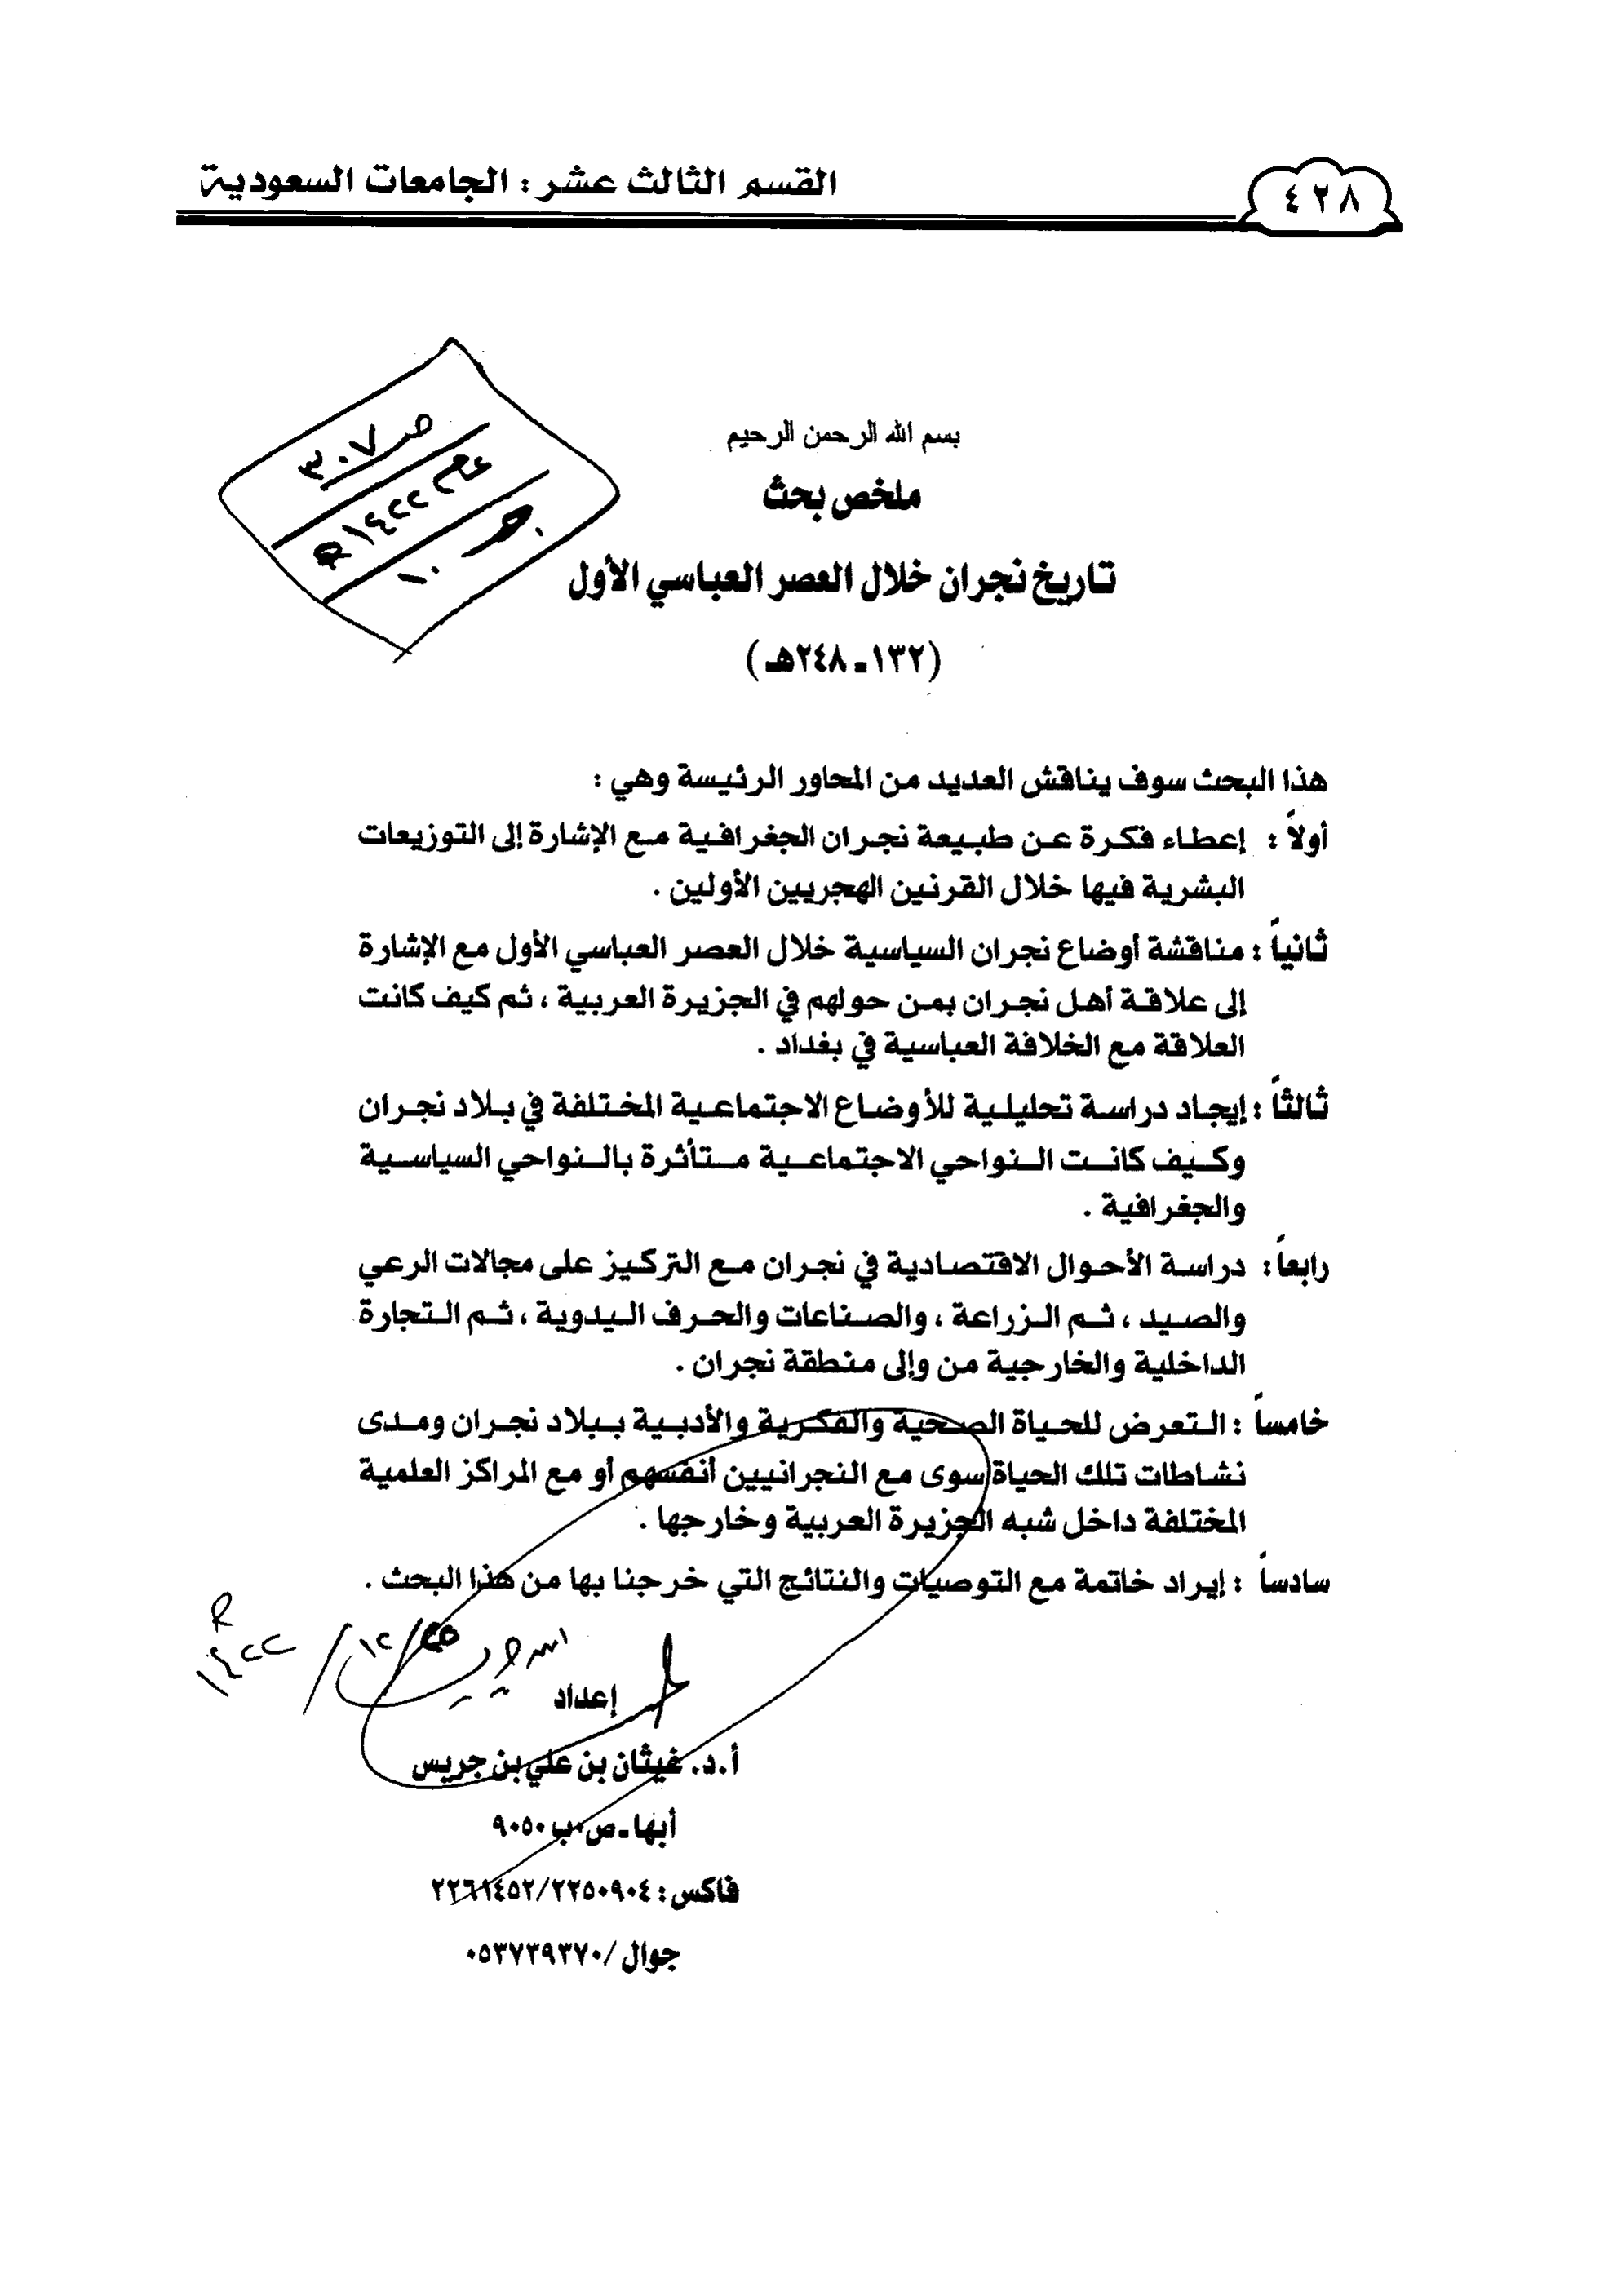 القسم الثالث عشر : الجامعات السعودية
٤٢٨
ص ٣٠٧
عام ١٤٢٢ هـ
جـ ١٠
بسم الله الرحمن الرحيم
ملخص بحث
تاريخ نجران خلال العصر العباسي الأول
(١٣٢ـ٢٤٨هـ)
هذا البحث سوف يناقش العديد من المحاور الرئيسة وهي :
أولاً : إعطاء فكرة عن طبيعة نجران الجغرافية مع الإشارة إلى التوزيعات
البشرية فيها خلال القرنين الهجريين الأولين .
ثانياً : مناقشة أوضاع نجران السياسية خلال العصر العباسي الأول مع الإشارة
إلى علاقة أهل نجران بمن حولهم في الجزيرة العربية ، ثم كيف كانت
العلاقة مع الخلافة العباسية في بغداد .
ثالثاً : إيجاد دراسة تحليلية للأوضاع الاجتماعية المختلفة في بلاد نجران
وكيف كانت النواحي الاجتماعية متأثرة بالنواحي السياسية
والجغرافية .
رابعاً : دراسة الأحوال الاقتصادية في نجران مع التركيز على مجالات الرعي
والصيد ، ثم الزراعة ، والصناعات والحرف اليدوية ، ثم التجارة
الداخلية والخارجية من وإلى منطقة نجران .
خامساً : التعرض للحياة الصحية والفكرية والأدبية ببلاد نجران ومدى
نشاطات تلك الحياة سوى مع النجرانيين أنفسهم أو مع المراكز العلمية
المختلفة داخل شبه الجزيرة العربية وخارجها .
سادساً : إيراد خاتمة مع التوصيات والنتائج التي خرجنا بها من هذا البحث .
١٤٢٢ هـ
إعداد
أ.د. غيثان بن علي بن جريس
أبها ـ ص.ب ٩٠٥٠
فاكس : ٢٢٦١٤٥٢/٢٢٥٠٩٠٤
جوال /٠٥٣٧٣٩٣٧٠